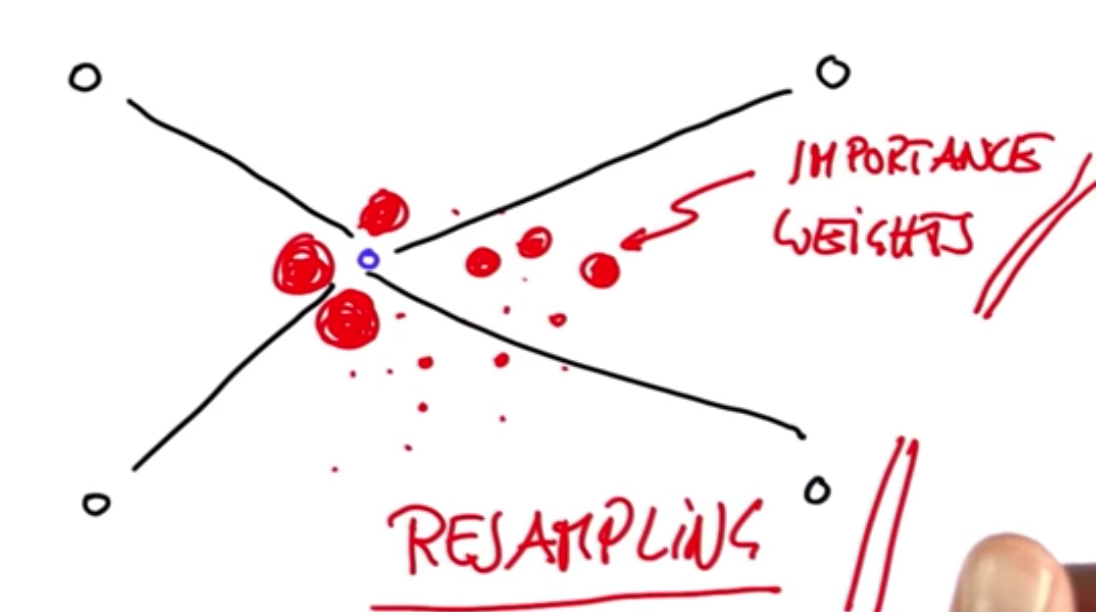 IMPORTANCE
WEIGHTS
RESAMPLING